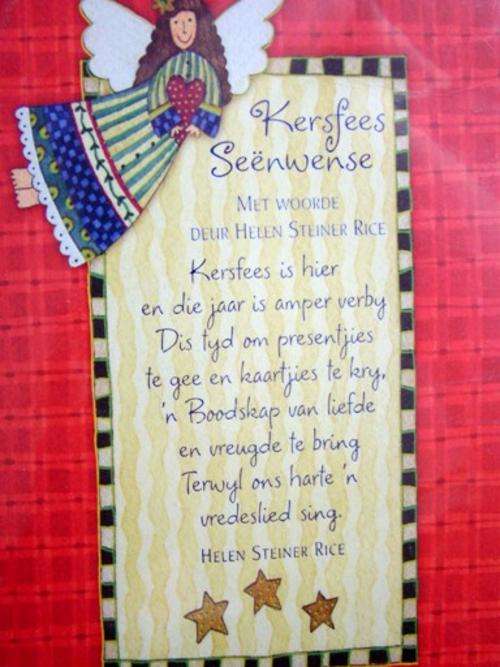 Kersfees
Seënwense
MET WOORDE
DEUR HELEN STEINER RICE
Kersfees is hier
en die jaar is amper verby
Dis tyd om presentjies
te gee en kaartjies te kry,
'n Boodskap van liefde
en vreugde te bring
Terwyl ons harte 'n
vredeslied sing.
HELEN STEINER RICE